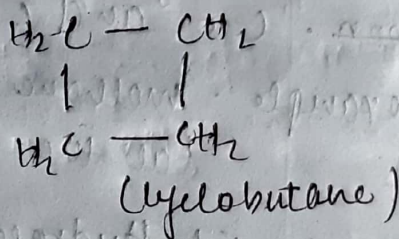 H₂C — CH₂
|      |
H₂C — CH₂
(Cyclobutane)